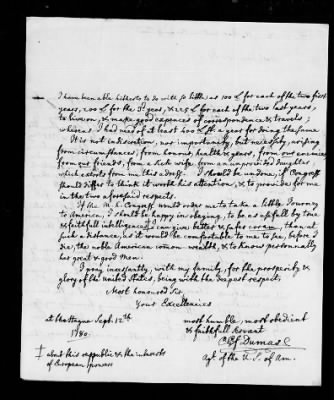 I have been able hitherto to do with so little as 100 L for each of the two first
years, 200 L for the 3d. year, & 225 L for each of the two last years,
to live on, & make good expences of correspondence & travels;
whereas I had need of at least 400 L St. a year for doing the same
It is not indiscretion, nor importunity, but necessity, arising
from circumstances, from honour, health & years, from our enemies
from our friends, from a sick wife, from an unprovided daughter
which extorts from me this address. I should be undone, if Congress
should differ to think it worth his attention, & to provide for me
in the two aforesaid respects.
If the M. h. Congress would order me to take a little Journey
to America, I should be happy in obeying, to be as usefull by true
& faithfull intelligences I can give better & safer coram, than at
such a distance, as it would be comfortable to me to see, before I
die, the noble American common-wealth, & to know personnally
her great & good Men.
I pray incessantly, with my family, for the prosperity &
glory of the united States, being with the deepest respect,
Most honoured Sir
Your Excellencies
at the Hague Sept. 12th.
1780.
most humble, most obedient
& faithfull servant
C W f Dumas
Agt. of the U. S. of Am.
about this republic & the interests
of European powers